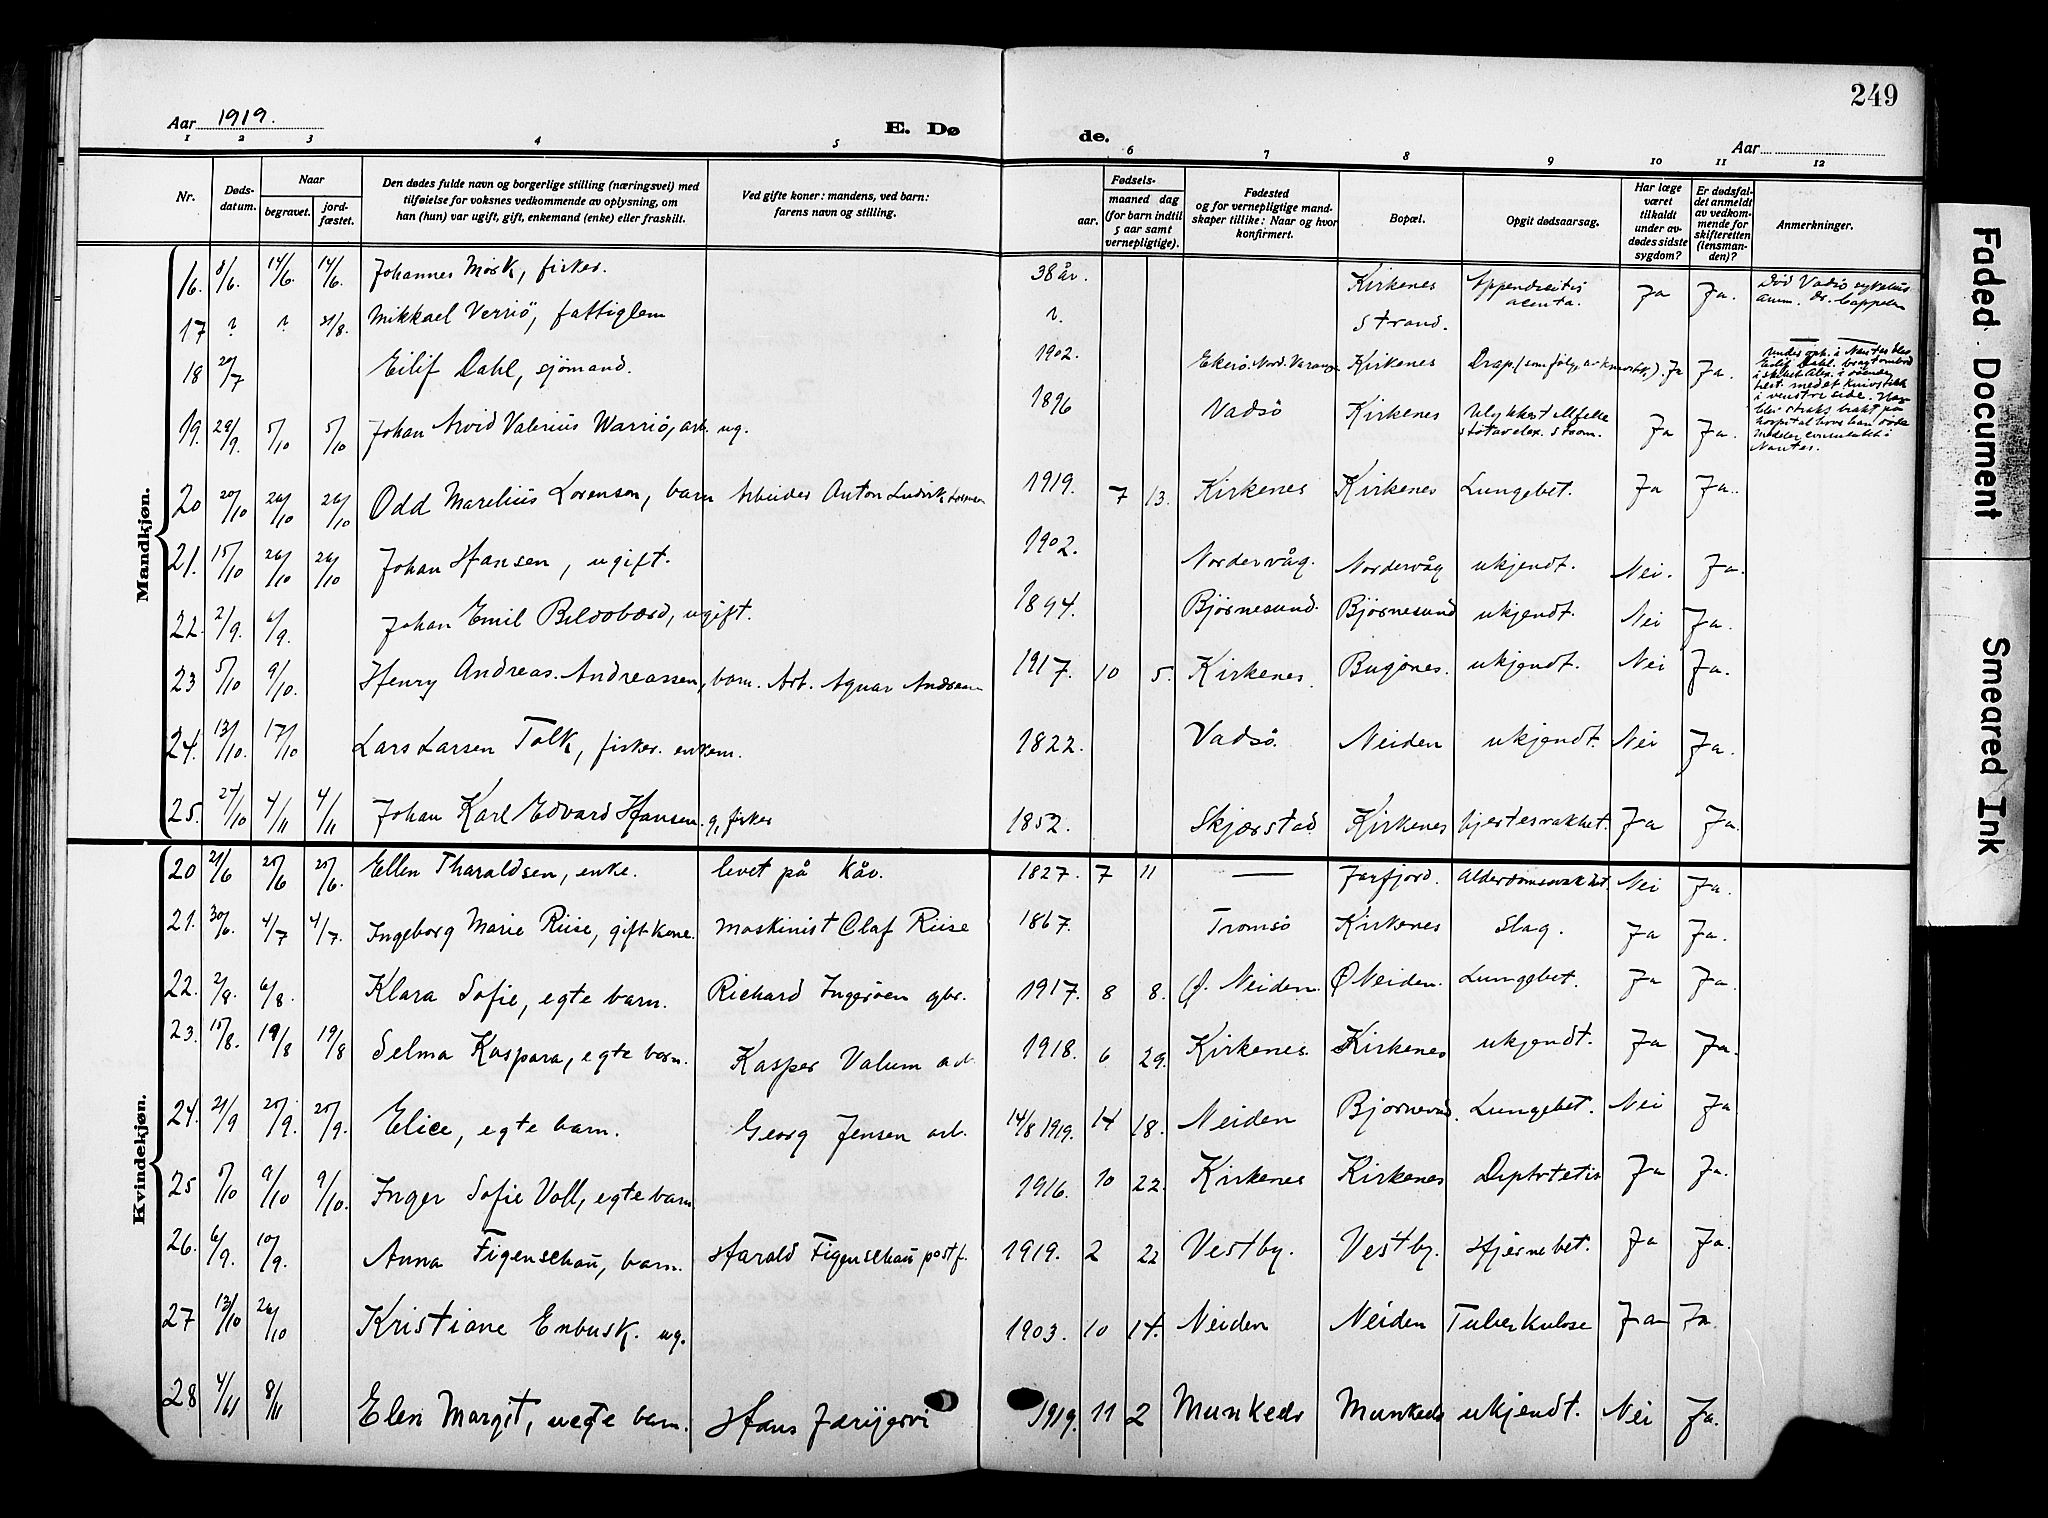 249
Aar 1919.
E. Dø de.
Aar
1 2 3 4 5 6 7 8 9 10 11 12
Nr.
Døds-
datum.
Naar
begravet.
jord-
fæstet.
Den dødes fulde navn og borgerlige stilling (næringsvei) med
tilføielse for voksnes vedkommende av oplysning, om
han (hun) var ugift, gift, enkemand (enke) eller fraskilt.
Ved gifte koner: mandens, ved barn:
farens navn og stilling.
Fødsels-
aar.
maaned dag
(for barn indtil
5 aar samt
vernepligtige).
Fødested
og for vernepligtige mand-
skaper tillike: Naar og hvor
konfirmert.
Bopæl.
Opgit dødsaarsag.
Har læge
været
tilkaldt
under av-
dødes sidste
sygdom?
Er dødsfal-
det anmeldt
av vedkom-
mende for
skifteretten
(lensman-
den)?
Anmerkninger.
Mandkjøn.
16. 8/6. 14/6. 14/6. Johannes Mørk, fisker. 38 år. Kirkenes Appendicitis acuta. Ja Ja. Død Vadsø sykehus anm. dr. Cappelen
17 ? ? 31/8. Mikkael Verriö, fattiglem ?. Strand.
18 20/7 Eilif Dahl, sjömand. 1902. Ekerö. Nord. Varang. Kirkenes Drap. (som følge av knivstik). Ja Ja.
19. 28/9. 5/10 5/10 Johan Arvid Valerius Warriö, arb. ug. 1896 Vadsö Kirkenes Ulykkestilfelle støt av elex. strøm. Ja Ja.
20 20/10 26/10 26/10 Odd Marelius Lorensen, barn Arbeider Anton Ludvik Lorensen 1919. 7 13. Kirkenes Kirkenes Lungebet. Ja Ja.
21. 15/10 26/10 26/10 Johan Hansen, ugift. 1902. Nordervåg. Nordervåg ukjendt. Nei. Ja.
22. 2/9. 6/9. Johan Emil ugift. 1894. Bjørnesund. Bjørnesund ukjendt. Nei Ja.
23 5/10 9/10. Henry Andreas. Andreassen, barn. Arb. Agnar Andreassen 1917. 10 5. Kirkenes. Bugönes. ukjendt. Nei Ja.
24. 13/10. 17/10 Lars Larsen Tolk, fisker. enkem. 1822. Vadsö. Neiden ukjendt. Nei Ja.
25. 27/10 4/11 4/11 Johan Karl Edvard Hansen. g, fisker 1852. Skjærstad. Kirkenes hjertesvakhet. Ja Ja.
Kvindekjøn.
20 21/6 25/6 25/6. Ellen Tharaldsen, enke. levet på kåv. 1827. 7 11 — Jarfjord. Alderdomssvakhet Nei Ja.
21. 30/6. 4/7 4/7. Ingeborg Marie Riise, gift kone. maskinist Olaf Riise 1867. Tromsö Kirkenes Slag. Ja Ja.
22. 2/8. 6/8. Klara Sofie, egte barn. Richard Ingerøen gbr. 1917. 8 8. Ø. Neiden. Ø Neiden. Lungebet. Ja Ja.
23. 15/8. 19/8 19/8 Selma Kaspara, egte barn. Kasper Valum arb. 1918. 6 29. Kirkenes. Kirkenes ukjendt. Ja Ja.
24. 21/9 25/9. 25/9. Elice, egte barn. Georg Jensen arb. 14/8 1919. 14 18. Neiden Bjørnevad. Lungebet. Nei Ja
25 5/10 9/10 9/10. Inger Sofie Voll, egte barn. 1916. 10 22. Kirkenes Kirkenes Diphtetis Ja Ja.
26. 6/9. 10/9. Anna Figenschau, barn. Harald Figenschau postf. 1919. 2 22 Vestby. Vestby. Hjernebet. Ja Ja.
27 13/10 26/10 Kristiane Enbusk. ug. 1903. 10 14. Neiden Neiden Tuberkulose Ja Ja.
28 4/11 8/11 Elen Margit, uegte barn. Hans Jærijervi 1919. 11 2 Munkedr Munkedr ukjendt. Nei Ja.
Faded Document
Smeared Ink